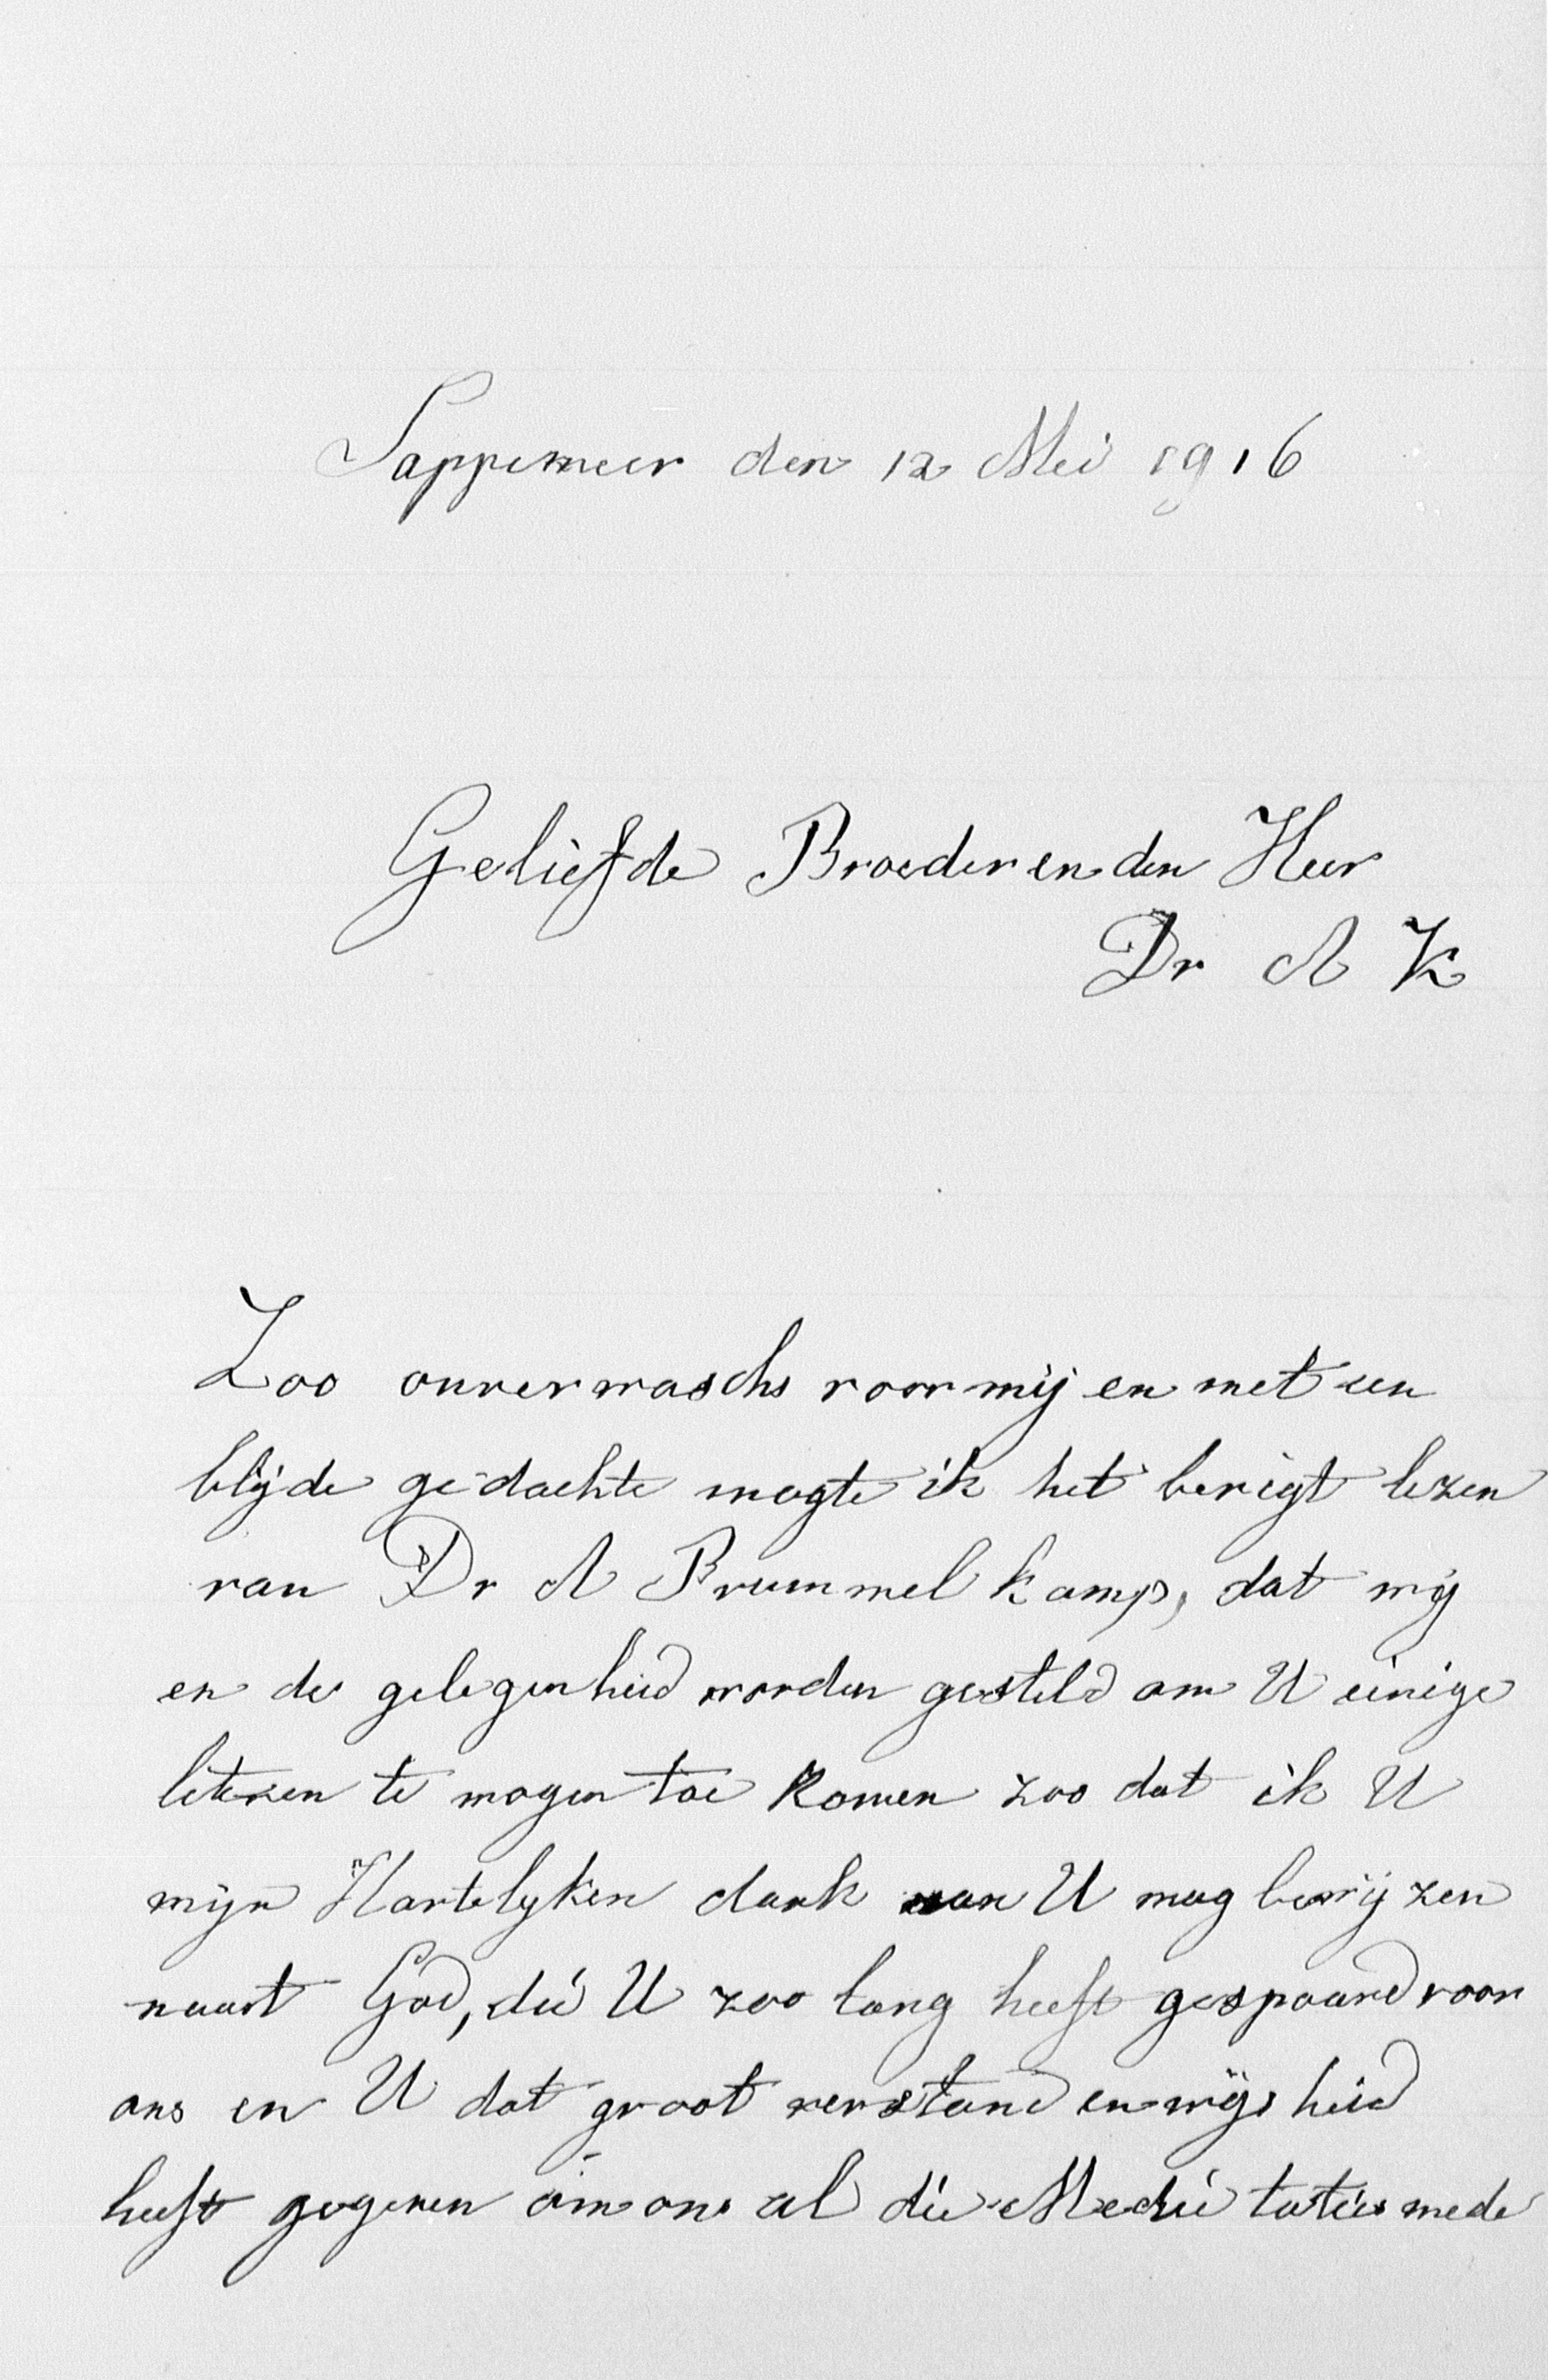 Sappemeer den 12 Mei 1916
Geliefde Broeder en den Heer
Dr A K
Zoo onverwaschs voor mij en met een
blijde gedachte mogte ik het berigt lezen
van Dr A Brummel kamp, dat wij
en de gelegenheid worden gesteld om U einige
leteren te mogen toe komen zoo dat ik U
mijn Hartelyken dank aan U mag bewijzen
naast God, die U zoo lang heeft gespaard voor
ons en U dat groot verstand en wijsheid
heeft gegeven om ons al die Medie taties mede